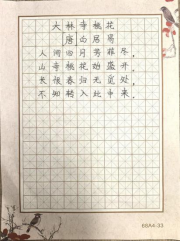 大林寺桃花
唐白居易
人间四月芳菲尽，
山寺桃花始盛开，
长恨春归无觅处，
不知转入此中来，